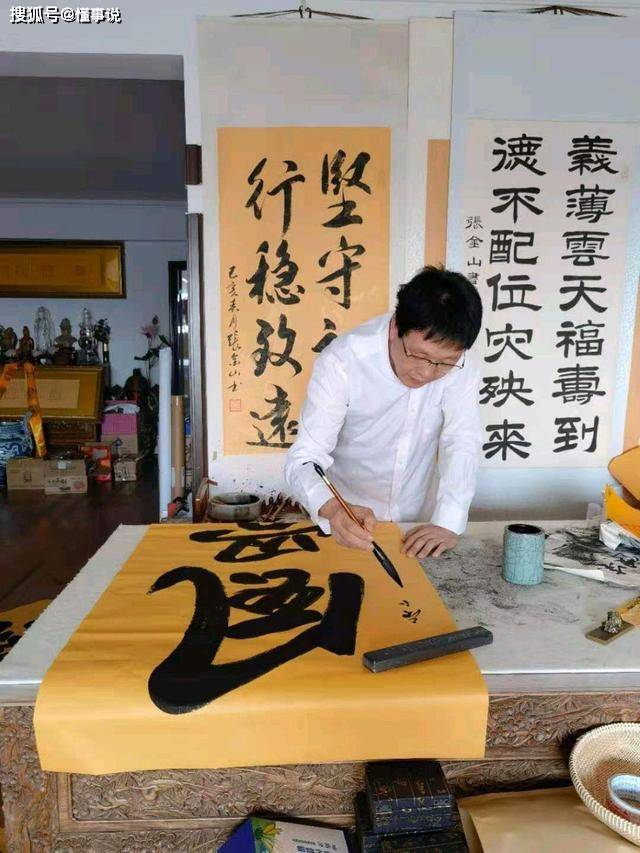 搜狐号@懂事说
義薄雲天福壽到
德不配位灾殃來
張金山書
堅守
行稳致遠
己亥春月張金山书